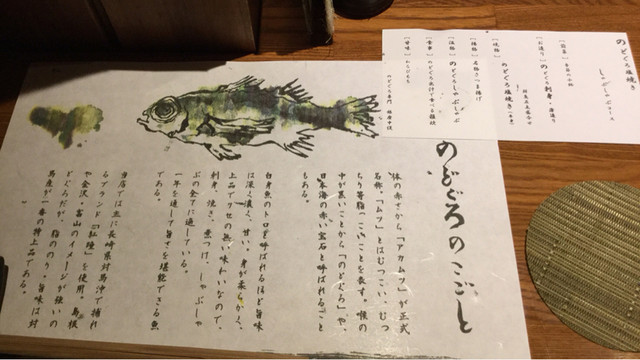 のどぐろ塩焼き
しゃぶしゃぶコース
【前菜】
【お造り】のどぐろ刺身・
【焼物】のどぐろ塩焼き
【揚物】
【温物】のどぐろしゃぶしゃぶ
【食事】
【甘味】わらびもち
のどぐろのこごと
体の赤さから「アカムツ」が正式
名称。「ムツ」とはむつこい、むつ
ちり等脂っこいことを表す。喉の
中が黒いことから「のどぐろ」や、
日本海の赤い宝石と呼ばれること
もある。
白身魚のトロと呼ばれるほど旨味
は深く濃く、甘い。身が柔らかく、
上品でクセの無い味わいなので、
刺身、焼き、煮つけ、しゃぶしゃ
ぶの全てに適している。
一年を通して旨さを堪能できる魚
である。
当店では主に長崎県対馬沖で捕れ
るブランド「紅瞳」を使用。島根
や金沢・富山のイメージが強いの
どぐろだが、脂ののり・旨味は対
馬産が一番の特上品である。